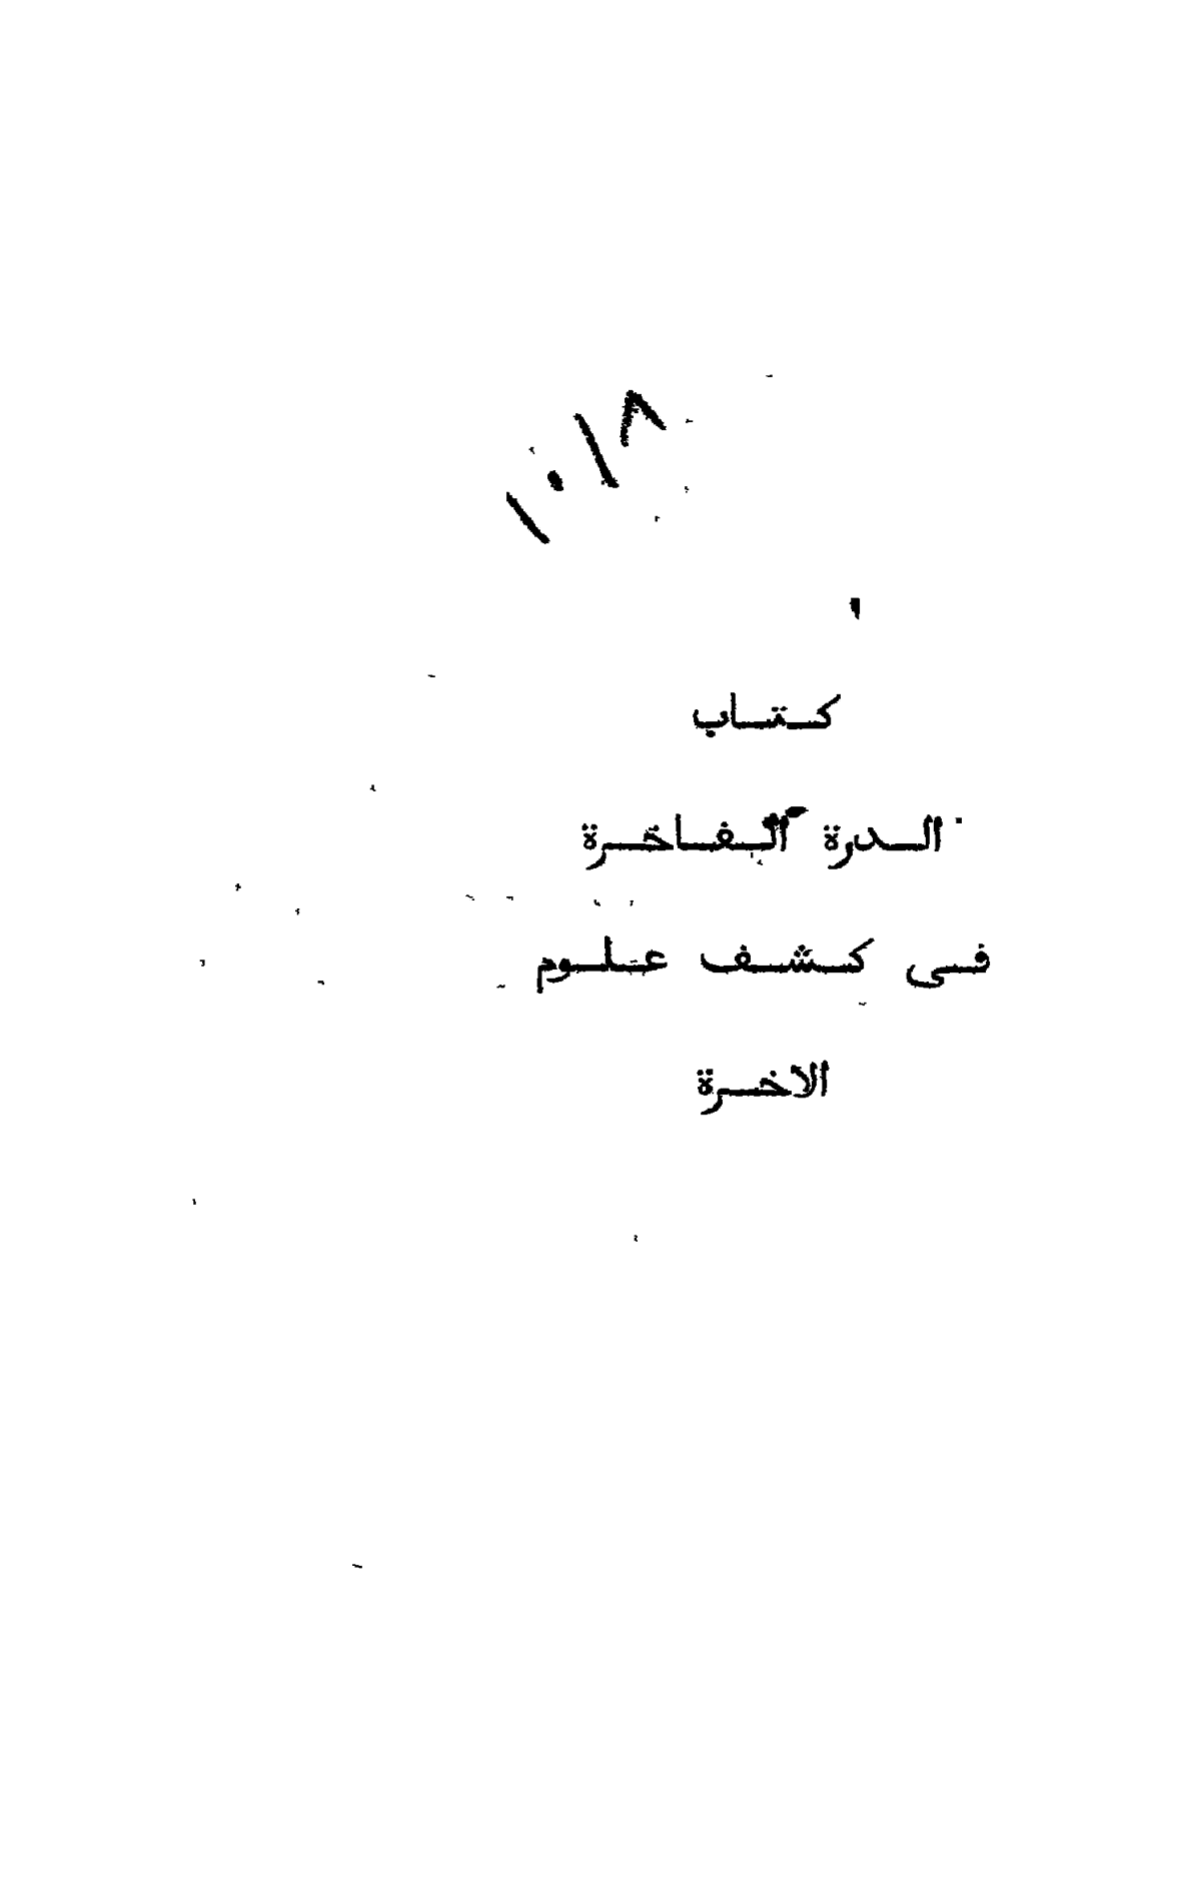 ١٠١٨
كتاب
الدرة الفاخرة
فى كشف علوم
الاخرة